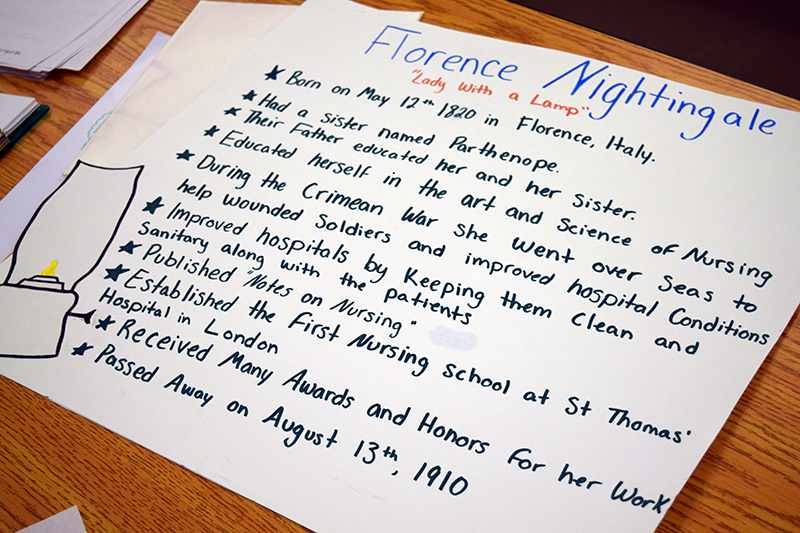 Florence Nightingale
"Lady with a Lamp"
★ Born on May 12th 1820 in Florence, Italy.
★ Had a sister named Parthenope.
★ Their Father educated her and her sister.
★ Educated herself in the art and Science of Nursing
★ During the Crimean War She went over Seas to
help wounded Soldiers and improved hospital Conditions
★ Improved hospitals by Keeping them Clean and
Sanitary along with the patients
★ Published "Notes on Nursing"
★ Established the First Nursing School at St Thomas'
Hospital in London
★ Received Many Awards and Honors for her Work
★ Passed Away on August 13th, 1910